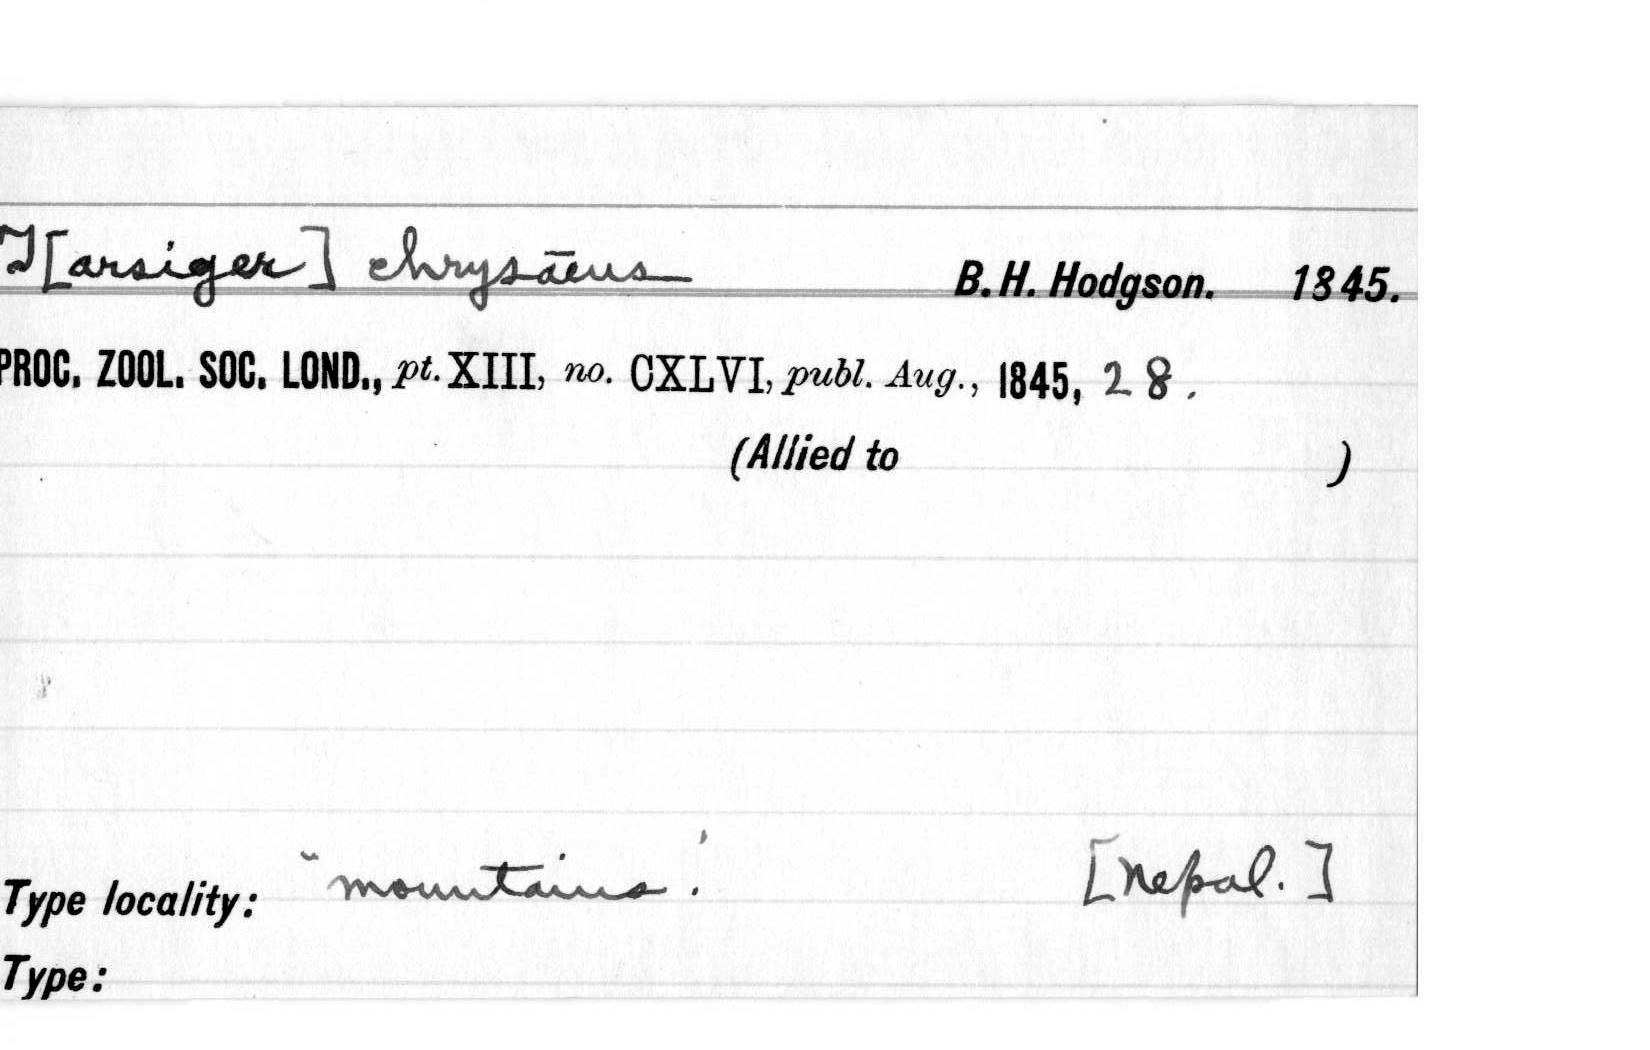 T[arsiger] chrysāeus B. H. Hodgson. 1845.
PROC. ZOOL. SOC. LOND., pt. XIII, no. CXLVI, publ. Aug., 1845, 28.
(Allied to )
Type locality: "mountains.' [Nepal.]
Type: